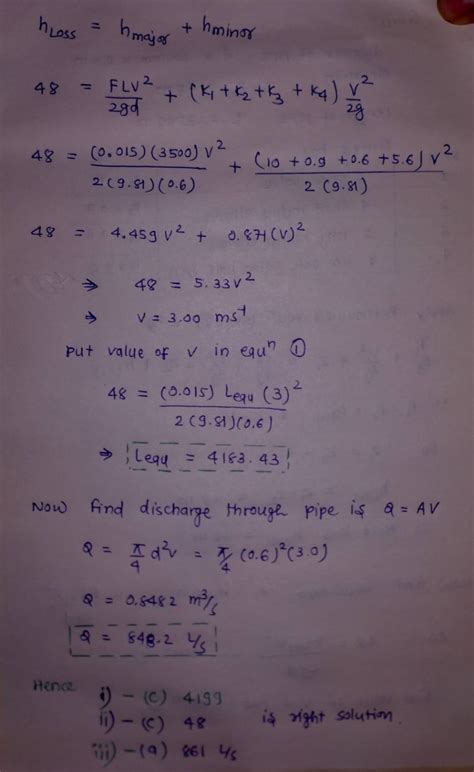 hLoss = hmajor + hminor
48 = FLV²/2gd + (K₁+K₂+K₃+K₄) V²/2g
48 = (0.015)(3500)V²/2(9.81)(0.6) + (10+0.9+0.6+5.6)V²/2(9.81)
48 = 4.459V² + 0.871(V)²
⇒ 48 = 5.33V²
⇒ V = 3.00 ms⁻¹
Put value of v in equⁿ ①
48 = (0.015) Lequ (3)²/2(9.81)(0.6)
⇒ Lequ = 4183.43
Now find discharge through pipe is Q = AV
Q = π/4 d²v = π/4 (0.6)²(3.0)
Q = 0.8482 m³/s
Q = 848.2 L/s
Hence
i) - (C) 4199
ii) - (C) 48 is right solution.
iii) - (a) 861 L/s